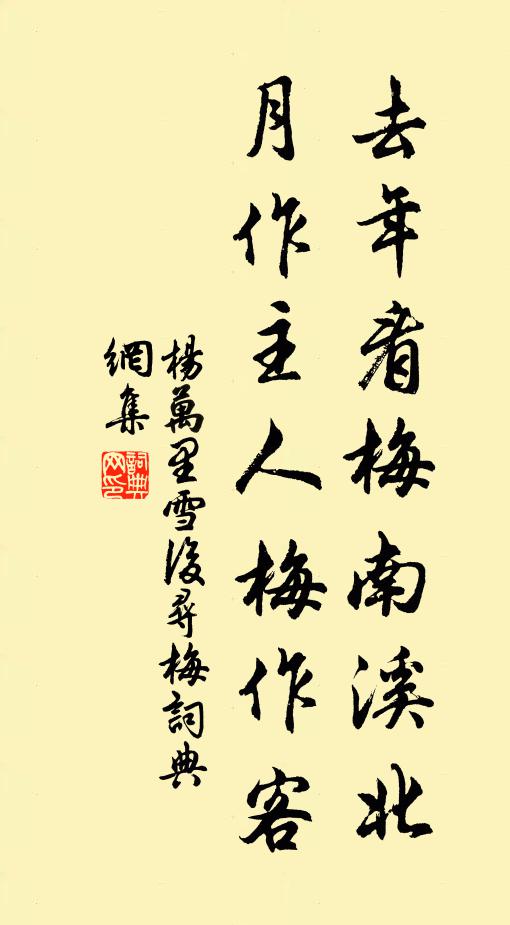 去年看梅南溪北
月作主人梅作客
楊萬里雪後尋梅詞典
網集
詞典
网印